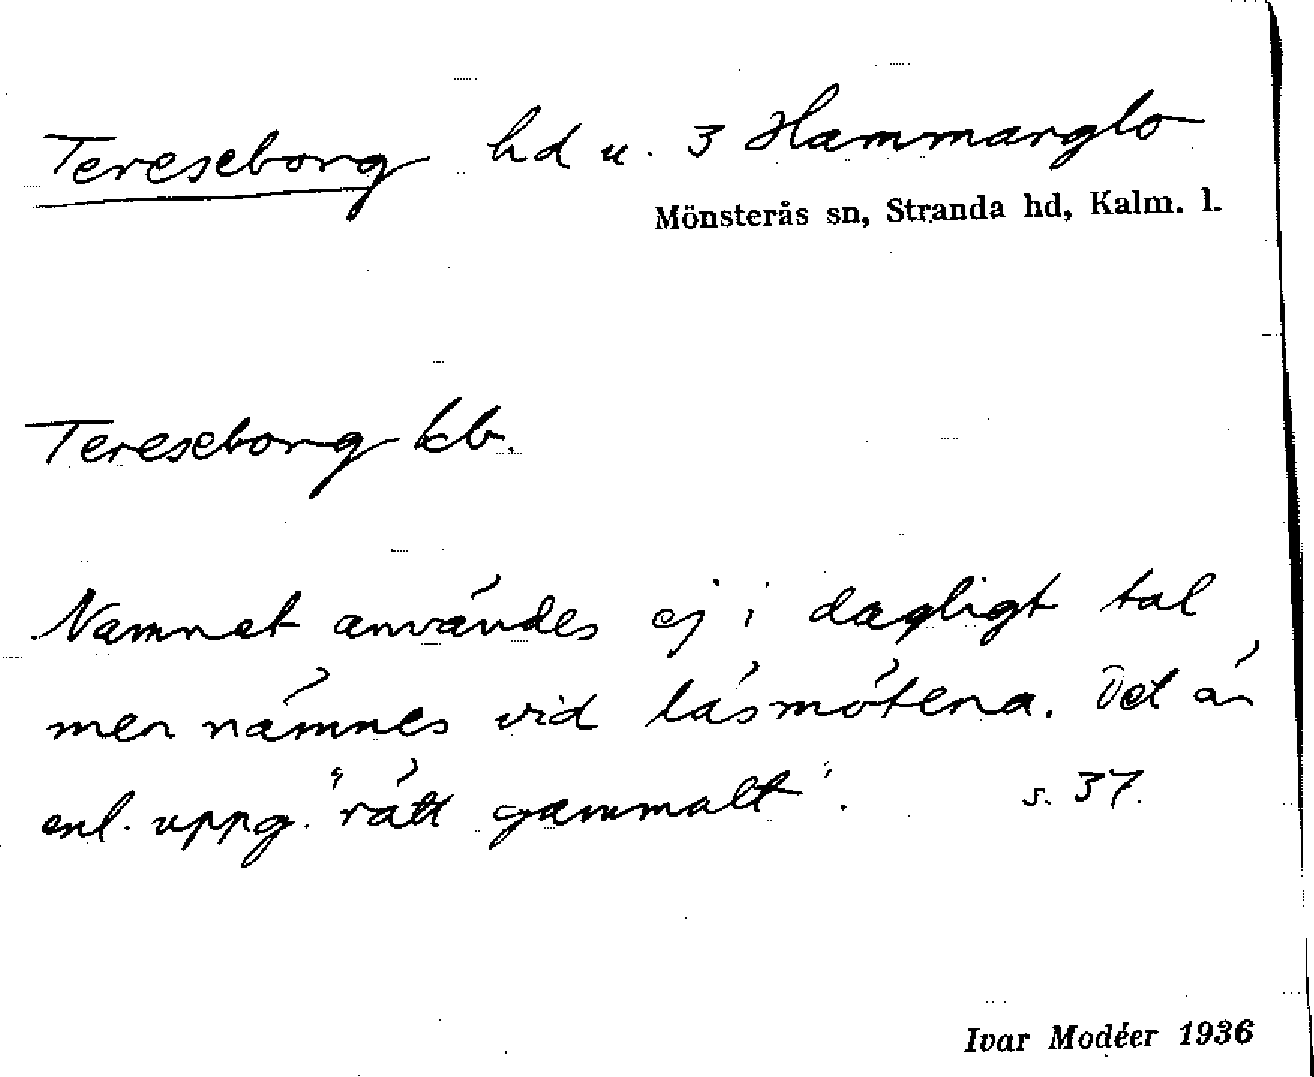 Tereseborg hd u. 3 Hammarglo
Mönsterås sn, Stranda hd, Kalm. l.
Tereseborg kb.
Namnet användes ej i dagligt tal
men nämnes vid läsmötena. Det är
enl. uppg. "rätt gammalt". s. 37.
Ivar Modéer 1936